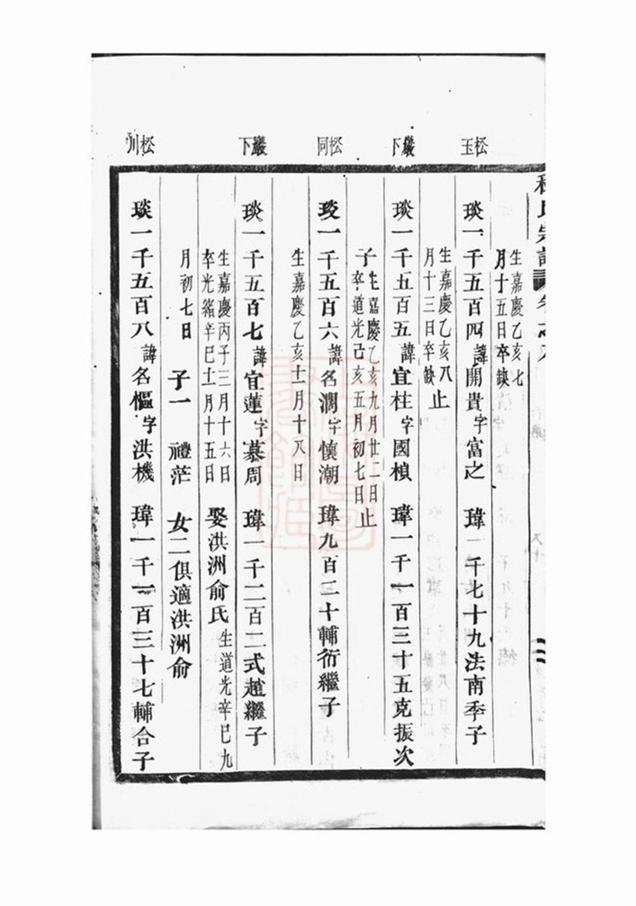 氏宗譜 卷之八
松玉
巖下
松同
巖下
松川
生嘉慶乙亥七
月十五日卒缺
琰一千五百四諱開貴字富之 瑋一千七十九法南季子
生嘉慶乙亥八
月十三日卒缺 止
琰一千五百五諱宜柱字國楨 瑋一千一百三十五克振次
子生嘉慶乙亥九月廿一日
卒道光己亥五月初七日止
琰一千五百六諱名潤字懷潮 瑋九百三十輔衍繼子
生嘉慶乙亥十一月十八日
琰一千五百七諱宜蓮字慕周 瑋一千二百二式趙繼子
生嘉慶丙子三月十六日
卒光緒辛巳十一月十五日 娶洪洲俞氏生道光辛巳九
月初七日 子一 禮茫 女二俱適洪洲俞
琰一千五百八諱名樞字洪機 瑋一千一百三十七輔合子